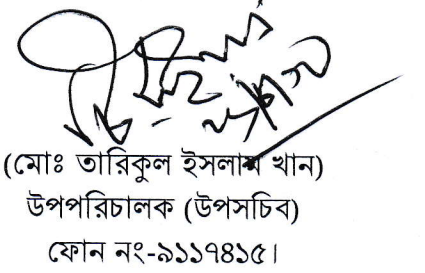 (মোঃ তারিকুল ইসলাম খান)
উপপরিচালক (উপসচিব)
ফোন নং-৯১১৭৪১৫।